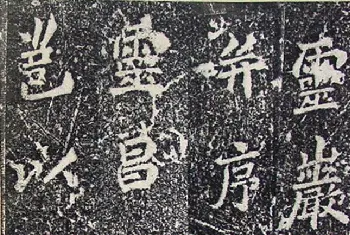 靈巖
并序
靈昌
邕以